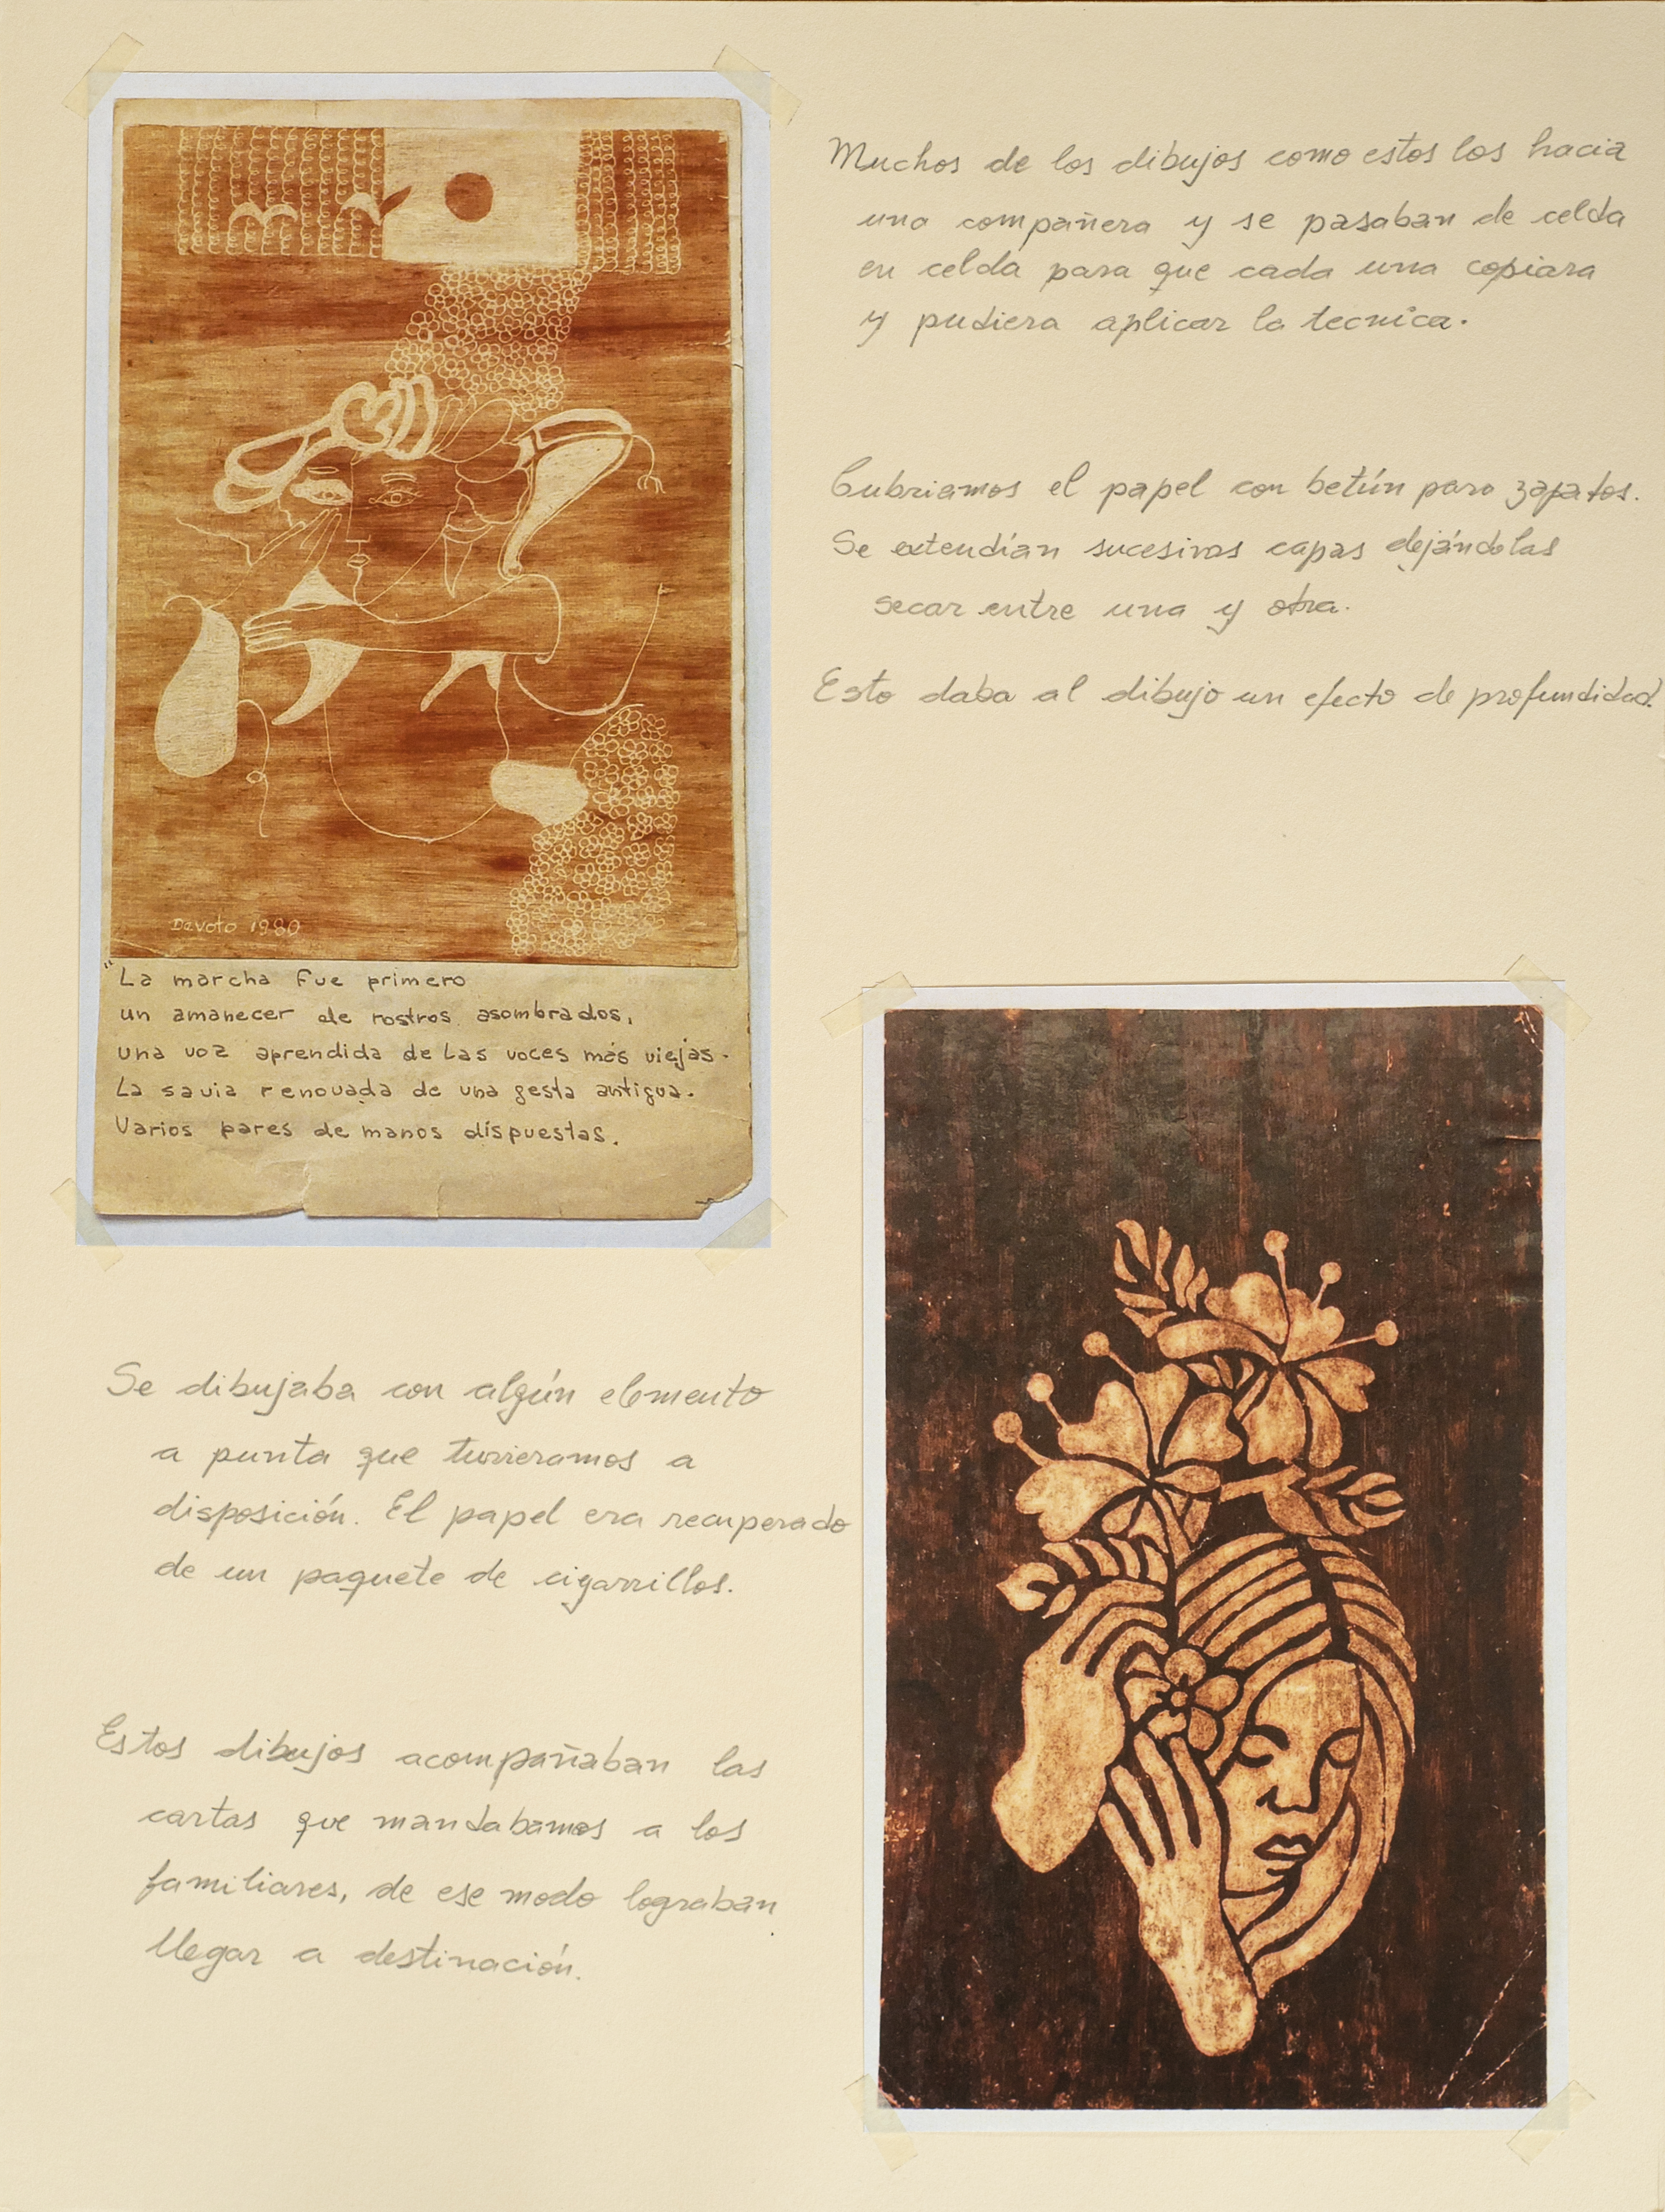 Muchos de los dibujos como estos los hacia
una compañera y se pasaban de celda
en celda para que cada una copiara
y pudiera aplicar la tecnica.
Cubriamos el papel con betún para zapatos.
Se extendían sucesivas capas dejándolas
secar entre una y otra.
Esto daba al dibujo un efecto de profundidad.
Devoto 1980
"La marcha fue primero
un amanecer de rostros asombrados,
una voz aprendida de las voces más viejas.
La savia renovada de una gesta antigua.
Varios pares de manos dispuestas.
Se dibujaba con algún elemento
a punta que tuvieramos a
disposición. El papel era recuperado
de un paquete de cigarrillos.
Estos dibujos acompañaban las
cartas que mandabamos a los
familiares, de ese modo lograban
llegar a destinación.